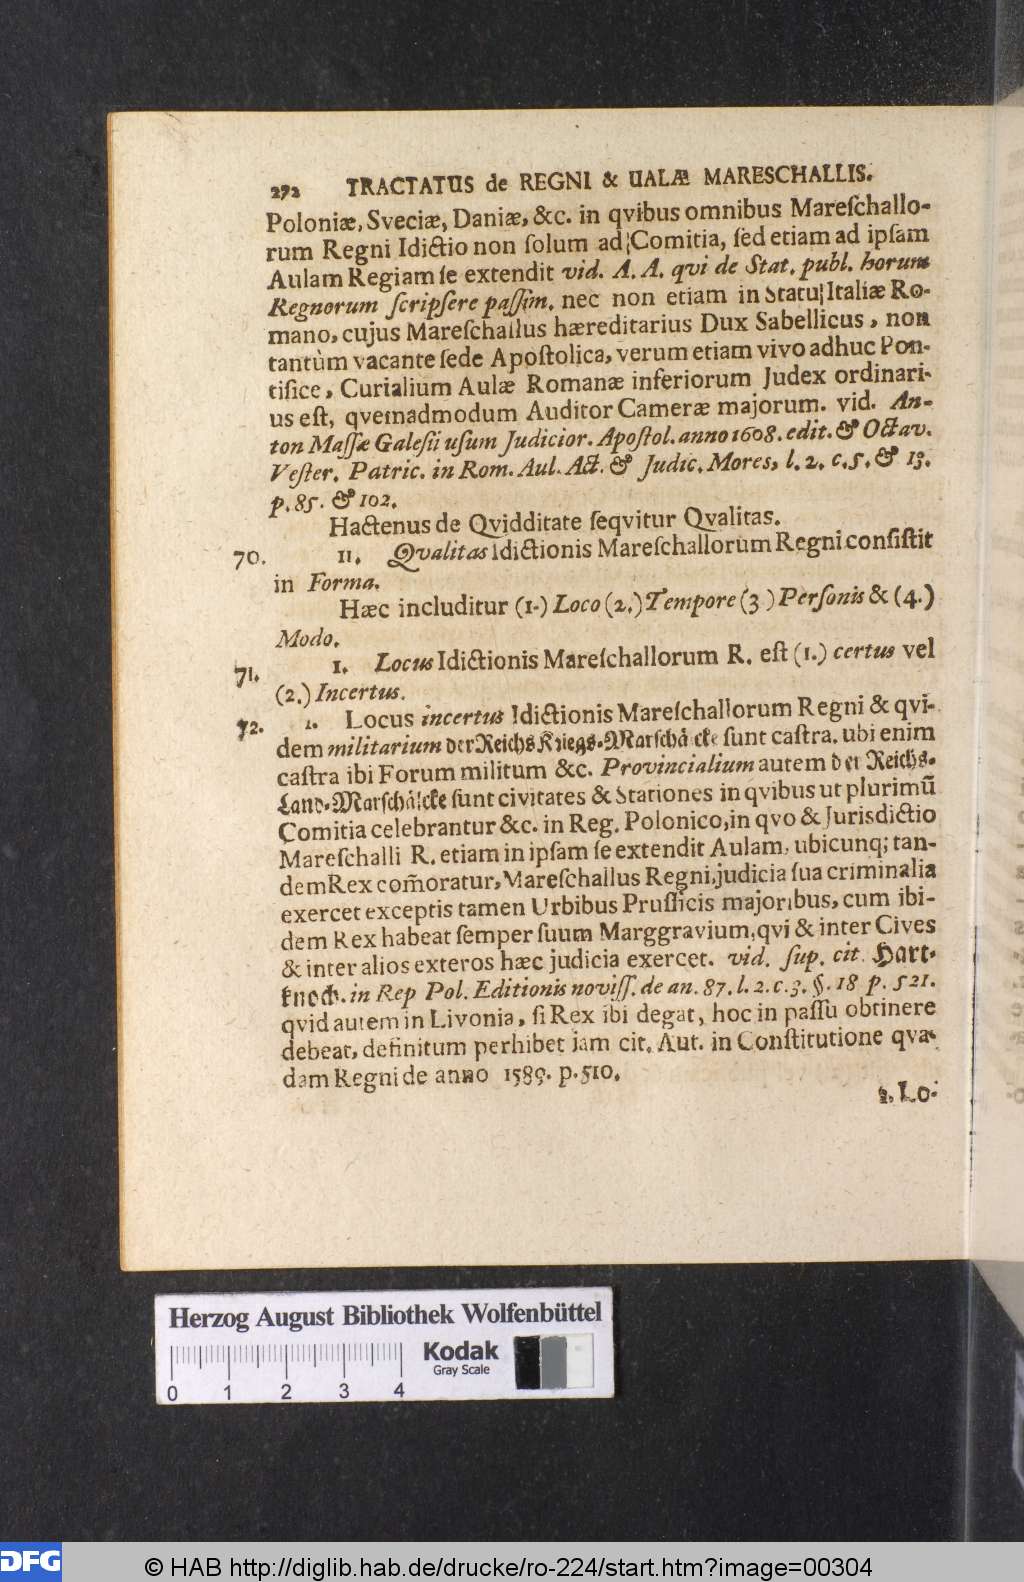 292 TRACTATUS de REGNI & UALÆ MARESCHALLIS.
Poloniæ, Sveciæ, Daniæ, &c. in qvibus omnibus Mareſchallo-
rum Regni Idictio non ſolum ad Comitia, ſed etiam ad ipſam
Aulam Regiam ſe extendit vid. A. A. qvi de Stat. publ. horum
Regnorum ſcripſere paſſim. nec non etiam in Statu Italiæ Ro-
mano, cujus Mareſchallus hæreditarius Dux Sabellicus, non
tantùm vacante ſede Apoſtolica, verum etiam vivo adhuc Pon-
tifice, Curialium Aulæ Romanæ inferiorum Judex ordinari-
us eſt, qvemadmodum Auditor Cameræ majorum. vid. An-
ton Maſſæ Galeſii uſum Judicior. Apoſtol. anno 1608. edit. & Octav.
Veſter. Patric. in Rom. Aul. Act. & Judic. Mores, l. 2. c. 5. & 13.
p. 85. & 102.
Hactenus de Qvidditate ſeqvitur Qvalitas.
70. II. Qvalitas Idictionis Mareſchallorum Regni conſiſtit
in Forma.
Hæc includitur (1.) Loco (2.) Tempore (3 ) Perſonis & (4.)
Modo.
71. 1. Locus Idictionis Mareſchallorum R. eſt (1.) certus vel
(2.) Incertus.
72. 1. Locus incertus Idictionis Mareſchallorum Regni & qvi-
dem militarium der Reichs Kriegs-Marſchålcke ſunt caſtra, ubi enim
caſtra ibi Forum militum &c. Provincialium autem der Reichs-
Land-Marſchålcke ſunt civitates & Stationes in qvibus ut plurimũ
Comitia celebrantur &c. in Reg. Polonico, in qvo & Jurisdictio
Mareſchalli R. etiam in ipſam ſe extendit Aulam, ubicunq; tan-
dem Rex com̃oratur, Mareſchallus Regni, judicia ſua criminalia
exercet exceptis tamen Urbibus Pruſſicis majoribus, cum ibi-
dem Rex habeat ſemper ſuum Marggravium, qvi & inter Cives
& inter alios exteros hæc judicia exercet. vid. ſup. cit. Hart-
knoch. in Rep Pol. Editionis noviſſ. de an. 87. l. 2. c. 3. §. 18 p. 521.
qvid autem in Livonia, ſi Rex ibi degat, hoc in paſſu obtinere
debeat, definitum perhibet jam cit. Aut. in Conſtitutione qva-
dam Regni de anno 1589. p. 510.
2. Lo-
Herzog August Bibliothek Wolfenbüttel
Kodak
Gray Scale
0 1 2 3 4
DFG
© HAB http://diglib.hab.de/drucke/ro-224/start.htm?image=00304